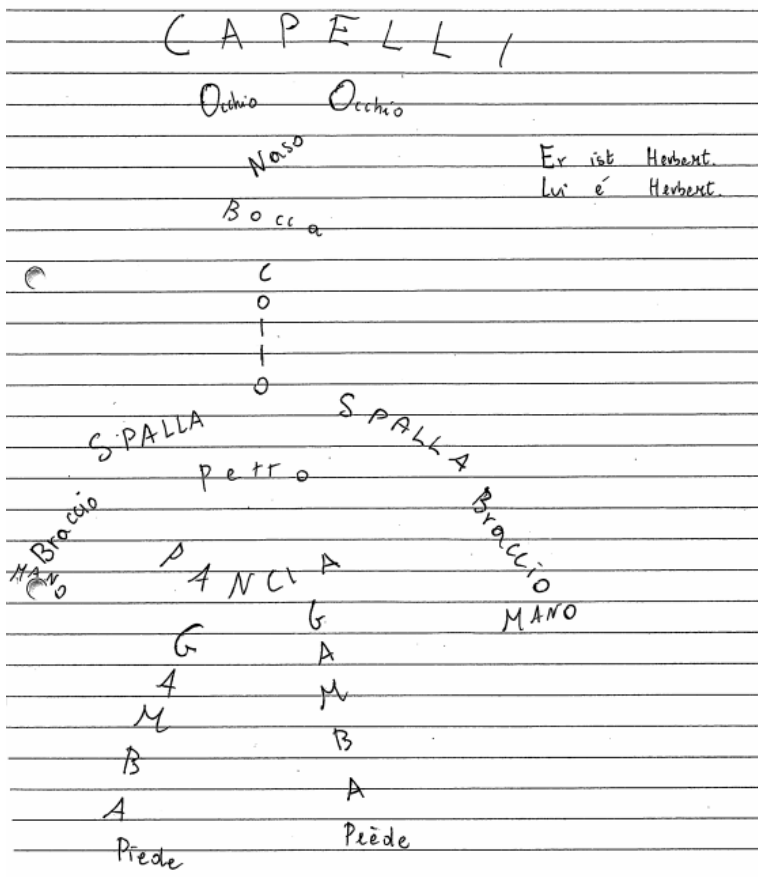 CAPELLI
Occhio Occhio
Naso
Er ist Herbert.
Bocca
Lui é Herbert.
COLLO
SPALLA SPALLA
Petto
Braccio Braccio
MANO PANCIA
MANO
GAMBA GAMBA
Piede Piède